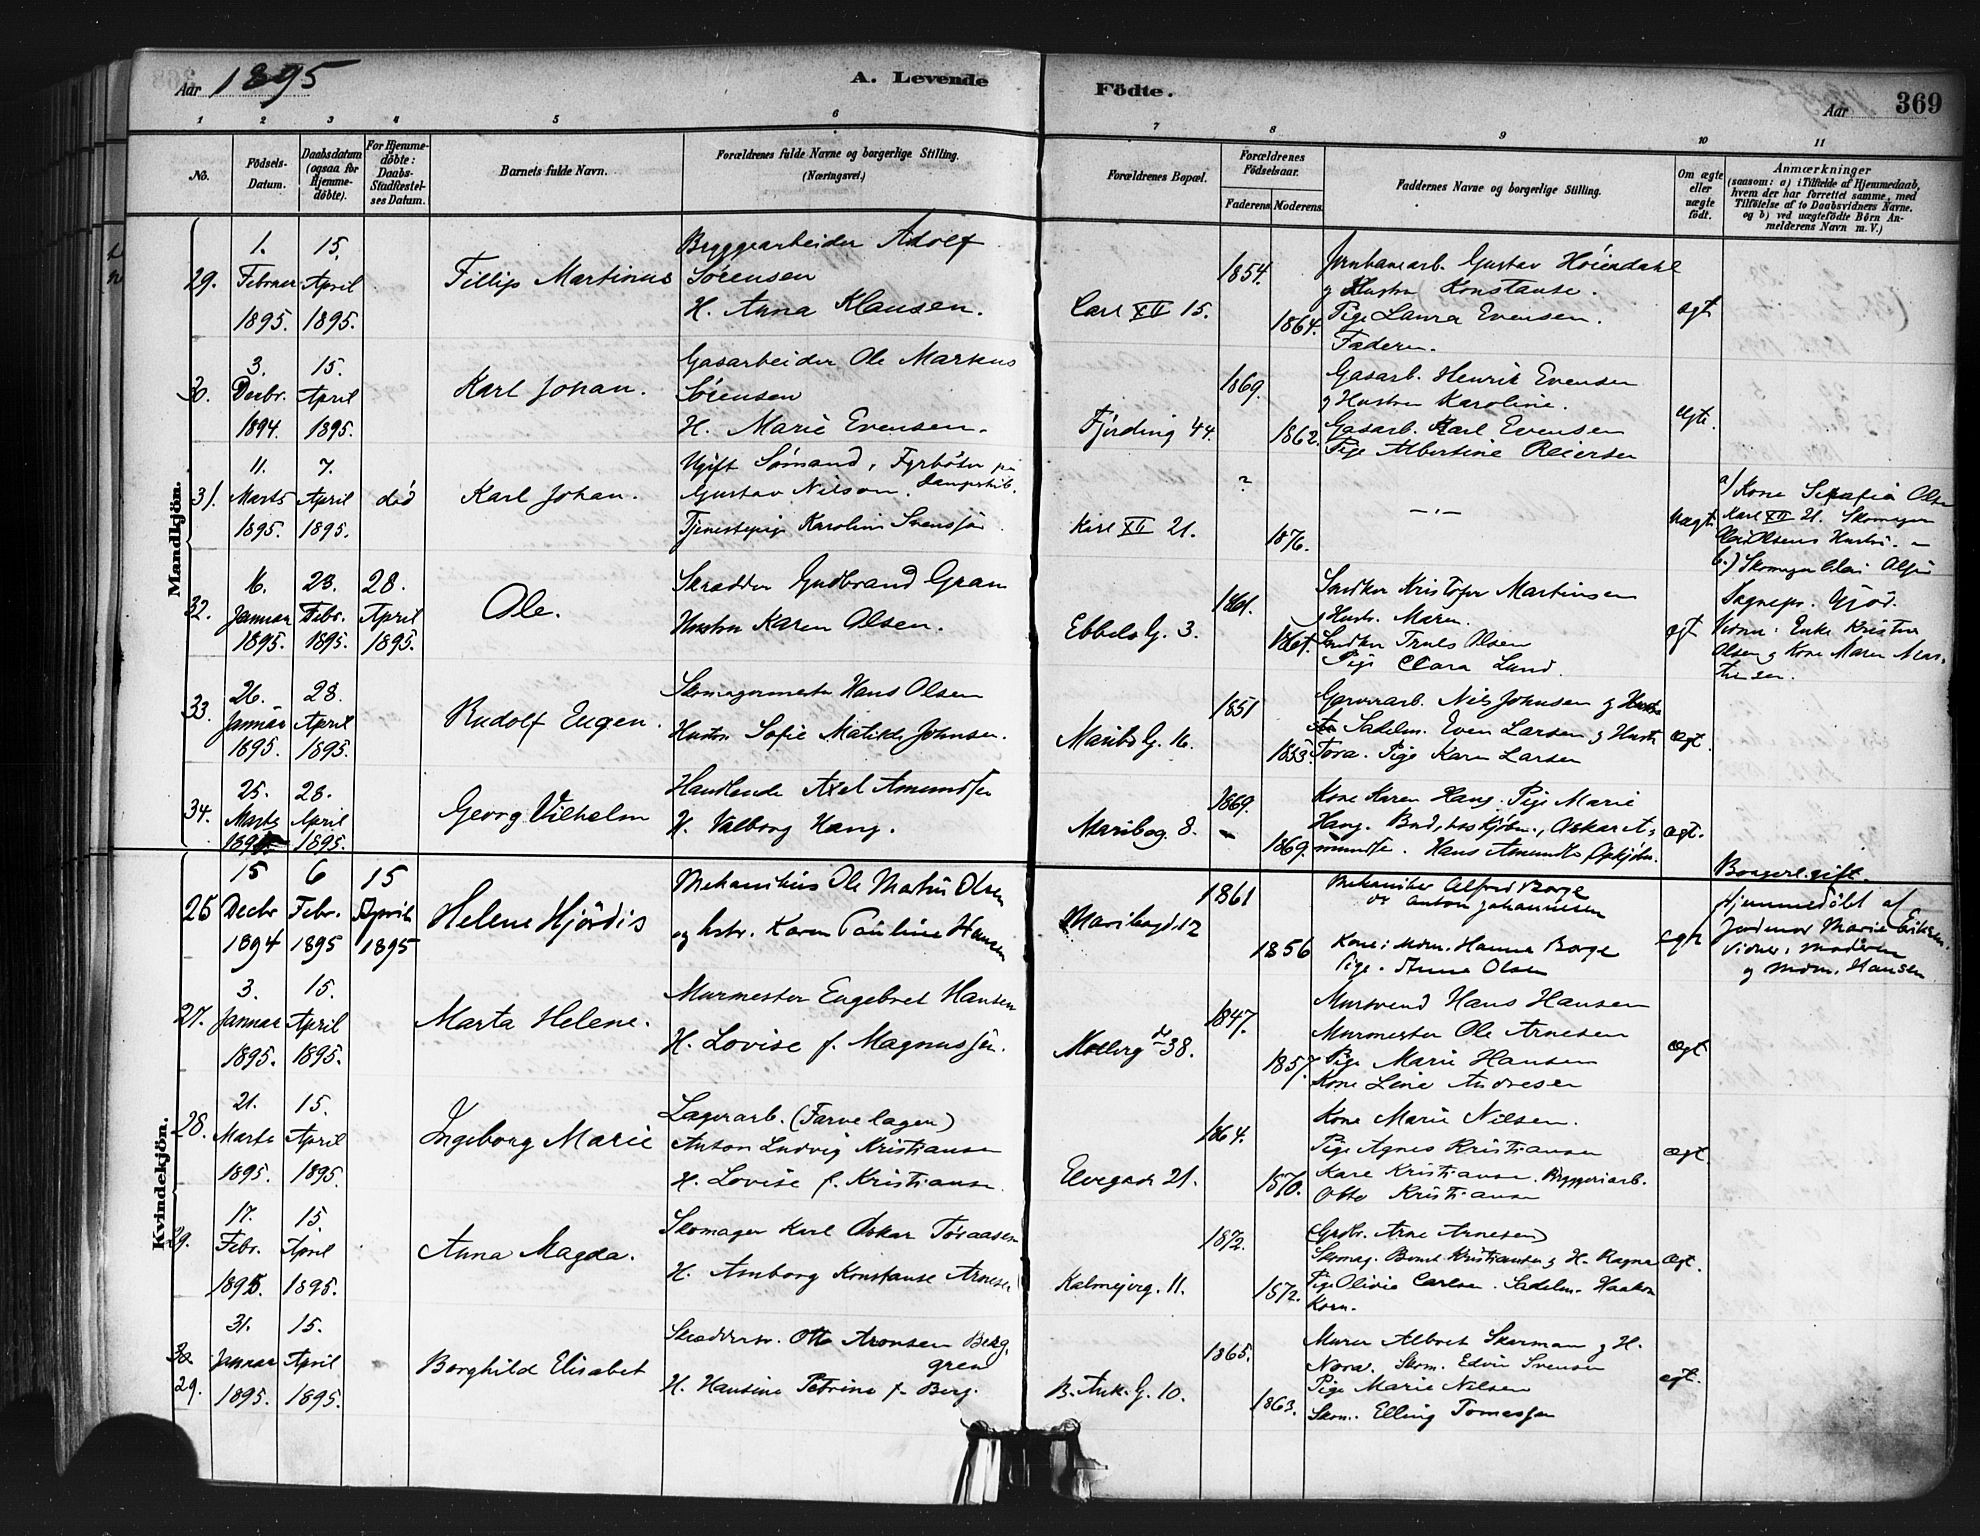 Aar 1895
A. Levende
Födte.
Aar
369
1 2 3 4 5 6 7 8 9 10 11
No.
Födsels-
Datum.
Daabsdatum
(ogsaa for
Hjemme-
döbte).
For Hjemme-
döbte:
Daabs-
Stadfæstel-
ses Datum.
Barnets fulde Navn.
Forældrenes fulde Navne og borgerlige Stilling.
(Næringsvei.)
Forældrenes Bopæl.
Forældrenes
Födselsaar.
Faderens.
Moderens.
Faddernes Navne og borgerlige Stilling.
Om ægte
eller
uægte
födt.
Anmærkninger
(saasom: a) i Tilfælde af Hjemmedaab,
hvem der har forrettet samme, med
Tilföielse af to Daabsvidners Navne.
og b) ved uægtefödte Börn An-
melderens Navn m. V.)
Mandkjön.
29.
1.
Februar
1895.
15.
April
1895.
Fillip Martinus
Bryggearbeider Adolf
Sörensen
H. Anna Klausen.
Carl XII 15.
1854.
1864.
Jernbanearb. Gustav Höiendahl
g Hustru Konstanse.
Pige Laura Evensen.
Faderen.
ægt
30.
3.
Decbr.
1894.
15.
April
1895.
Karl Johan.
Gasarbeider Ole Markus
Sörensen
H. Marie Evensen.
Fjerding 44.
1869.
1862.
Gasarb. Henrik Evensen
g Hustru Karoline.
Gasarb. Karl Evensen
Pige Albertine Reiersen
ægte.
31.
11.
Marts
1895.
7.
April
1895.
död
Karl Johan.
Ugift Sömand, Fyrböter på
Gustav Nilson. Dampskib.
Tjenestepige Karoline Svensson
Karl XII 21.
?
1876.
— " —
uægt
a) Kone Serafia Olsen
Karl XII 21. Skomager
Olai Olsens Hustru.
b.) Skomager Olai Olsen
32.
16.
Januar
1895.
23.
Febr.
1895.
28.
April
1895.
Ole.
Skrædder Gudbrand Gran
Hustru Karen Olsen.
Ebbels G. 3.
1861.
1861.
Snedker Kristofer Martinsen
g Hustr. Maren.
Snedker Truls Olsen
Pige Clara Lund.
ægt
Sognepr. Gjör.
Vidner: Enke Kristine
Olsen g Kone Maren Mar-
tinsen.
33.
26.
Januar
1895.
28.
April
1895.
Rudolf Eugen.
Skomagermester Hans Olsen
Hustru Sofie Matilde Johnsen.
Maribo G. 16.
1851
1853.
Garverarb. Nils Johnsen g Hust-
Sadelm. Even Larsen g Hustr
Tora. Pige Karen Larsen
ægt.
34.
25.
Marts
1895
28.
April
1895.
Georg Vilhelm
Handlende Axel Amundsen
H. Valborg Haug.
Maribog. 8.
1869.
1869.
Kone Karen Haug. Pige Marie
Haug. Oskar A-
mundsen. Hans Amundsen
ægt.
Borgerl. gift.
Kvindekjön.
26
15
Decbr
1894
6
Febr.
1895
15
April
1895
Helene Hjördis
Mekanikus Ole Martin Olsen
og hstr. Karen Pauline Hansen
Maribogd. 12
1861
1856
Mekaniker Alfred Borge
Anton Johannesen
Kone: Mdm. Hanna Borge
Pige. Anna Olsen
egte
Hjemmedöbt af
Jordmor Marie Eriksen.
Vidner: Moderen
og Mdm. Hansen
27.
3.
Januar
1895.
15.
April
1895.
Marta Helene.
Murmester Engebret Hansen
H. Lovise f. Magnussen.
Möllerg 38.
1847.
1857.
Mursvend Hans Hansen
Murmester Ole Arnesen
Pige Marie Hansen
Kone Line Andresen
ægt
28.
21.
Marts
1895.
15.
April
1895.
Ingeborg Marie
Lagerarb. (Farvelager)
Anton Ludvig Kristiansen
H. Lovise f. Kristiansen.
Elvegade 21.
1864.
1870.
Kone Marie Nilsen.
Pige Agnes Kristiansen
Kare Kristiansen. Bryggeriarb.
Otto Kristiansen
ægt.
29.
17.
Febr.
1895.
15.
April
1895.
Anna Magda.
Skomager Karl Oskar Töraasen
H. Amborg Konstanse Arnesen
Kalmeyerg. 11.
1872.
1872.
(Grdbr. Arne Arnesen)
Skomag. Bernt Kristiansen g H. Ragna
Pige Olivia Carlsen. Sadelm. Haakon
Korn.
ægt.
30
29.
31.
Januar
1895.
15.
April
1895.
Borghild Elisabet
Skræddersv. Otto Aronsen Berg-
gren
H. Hansine Petrine f. Berg.
B. Ank. G. 10.
1865.
1863.
Murer Albret Skarman g H.
Nora. Skom. Edvin Svensen
Pige Marie Nilsen
Skom. Elling Tomassen
egt.